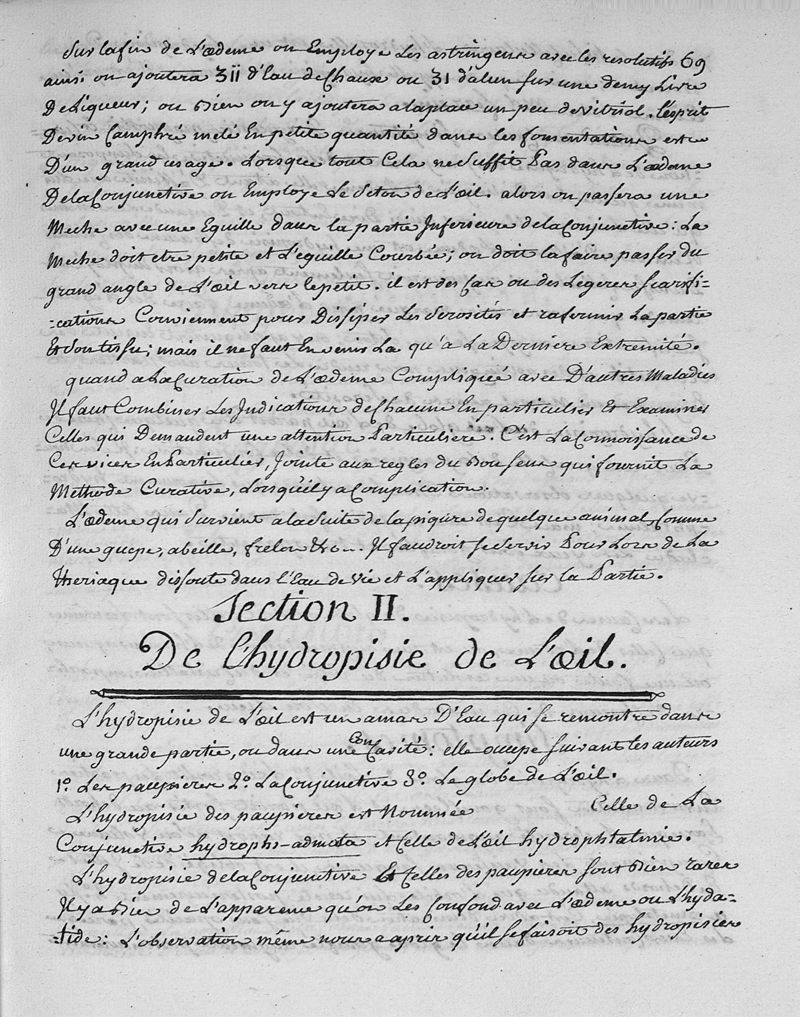 Sur la fin de L'œdeme on Employe Les astringens avec les resolutifs 69
ainsi on ajoutera ʒii d'Eau de Chaux ou ʒi d'alun sur une demy Livre
De Liqueur; ou Bien on y ajoutera a la place un peu de vitriol. l'esprit
De vin Camphré melé En petite quantité dans les fomentations est
D'un grand usage. Lorsque tout Cela ne Suffit Pas dans L'œdeme
De la Conjunctive on Employe Le Seton de L'œil. alors on passera une
Meche avec une Eguille dans la partie Inferieure de la Conjunctive: La
Meche doit etre petite et L'eguille Courbée; on doit la faire passer du
grand angle de L'œil vers le petit. il est des Cas ou des Legeres scarifi-
-cations Conviennent pour Dissiper Les Serosités et rafermir La partie
Et Son tissu; mais il ne faut En venir La qu'a La Derniere Extremité.
quand a La Curation de L'œdeme Compliqué avec D'autres Maladies
Il faut Combiner Les Indications de Chacune En particulier Et Examiner
Celles qui Demandent une attention Particuliere. C'est La Connoissance de
Ces vices En Particulier, Jointe aux regles du Bon Sens qui fournit La
Methode Curative, Lorsqu'il y a Complication.
L'œdeme qui Survient a la Suite de la piqure de quelque animal, Comme
D'une guepe, abeille, frelon &c... Il faudroit se Servir Pour Lors de La
theriaque dissoute dans l'Eau de vie et L'appliquer sur la Partie.
Section II.
De l'hydropisie de L'œil.
L'hydropisie de L'œil est un amas D'Eau qui se rencontre dans
une grande partie, ou dans une Con Cavité: elle occupe suivant les auteurs
1°. Les paupieres 2°. La Conjunctive 3°. Le globe de L'œil.
L'hydropisie des paupieres est Nommée Celle de La
Conjunctive hydrophs-adnata et Celle de L'œil hydrophtalmie.
L'hydropisie de la Conjunctive Et Celles des paupieres sont Bien rares
Il y a Bien de L'apparence qu'on Les Confond avec L'œdeme ou L'hyda-
-tide: L'observation même nous a apris qu'il se faisoit des hydropisies